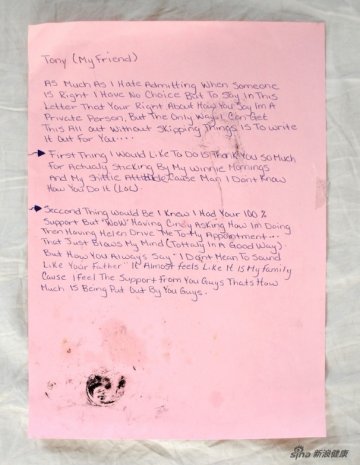 Tony (My Friend)
As Much As I Hate Admitting When Someone
Is Right I Have No Choice But To Say In This
Letter That Your Right About How You Say Im A
Private Person, But The Only Way I Can Get
This All out Without Skipping Things Is To Write
It Out For You....
First Thing I Would Like To Do Is Thank You So Much
For Actually Sticking By My Winnie Mornings
And My Shittie Attitude Cause Man I Dont Know
How You Do It (LOL)
Seccond Thing Would Be I Knew I Had Your 100%
Support But "WOW" Having Cindy Asking How Im Doing
Then Having Helen Drive Me To My Appointment...
That Just Blows My Mind (Tottaly In A Good Way)
But How You Always Say "I Dont Mean To Sound
Like Your Father" It Almost feels Like It Is My family
Cause I Feel The Support From You Guys Thats How
Much Is Being Put Out By You Guys.
sina 新浪健康